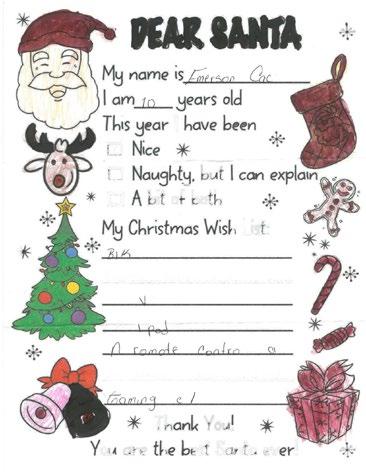 DEAR SANTA
My name is Emerson
I am 10 years old
This year I have been
Nice
Naughty, but I can explain
A bit of both
My Christmas Wish List:
V
A remote contro
Thank You!
You are the best Santa ever!